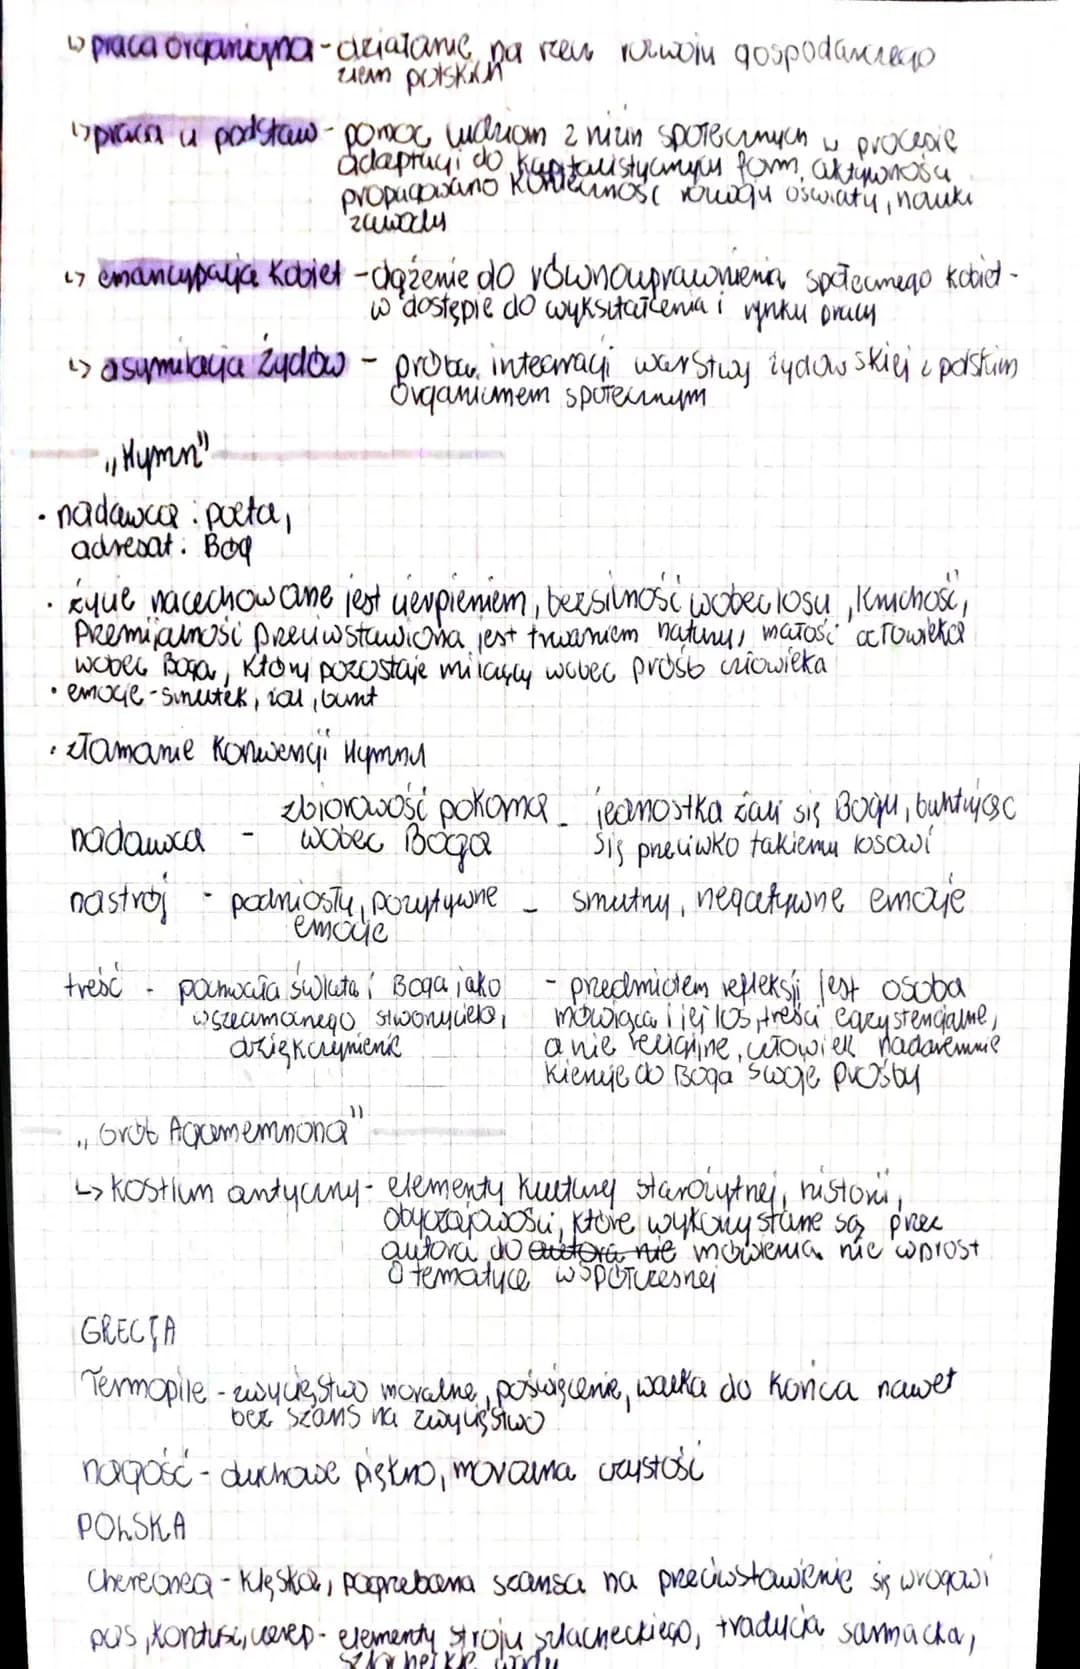 ↳ praca organiczna - działanie na rzecz rozwoju gospodarczego
ziem polskich
↳ praca u podstaw - pomoc ludziom z nizin społecznych w procesie
adaptacji do kapitalistycznych form aktywności
propagowano konieczność rozwoju oświaty, nauki
zawodu
↳ emancypacja kobiet - dążenie do równouprawnienia społecznego kobiet -
w dostępie do wykształcenia i rynku pracy
↳ asymilacja Żydów - próba integracji warstwy żydowskiej z polskim
organizmem społecznym
„Hymn"
• nadawca : poeta,
adresat : Bóg
• życie nacechowane jest cierpieniem, bezsilność wobec losu, kruchość,
przemijalność przeciwstawiona jest trwaniem natury, małość człowieka
wobec Boga, który pozostaje milczący wobec próśb człowieka
• emocje - smutek, żal, bunt
• złamanie konwencji Hymnu
zbiorowość pokorna - jednostka żali się Bogu, buntując
nadawca - wobec Boga się przeciwko takiemu losowi
nastrój - podniosły, pozytywne - smutny, negatywne emocje
emocje
treść - pochwała świata i Boga jako - przedmiotem refleksji jest osoba
wszechmocnego stworzyciela, mówiąca i jej los, treści egzystencjalne,
dziękczynienie a nie religijne, człowiek nadaremnie
kieruje do Boga swoje prośby
„Grób Agamemnona"
↳ kostium antyczny - elementy kultury starożytnej, historii,
obyczajowości, które wykorzystane są przez
autora do autora nie mówienia nie wprost
o tematyce współczesnej
GRECJA
Termopile - zwycięstwo moralne, poświęcenie, walka do końca nawet
bez szans na zwycięstwo
nagość - duchowe piękno, moralna czystość
POLSKA
Cheronea - klęska, pogrzebana szansa na przeciwstawienie się wrogowi
pas, kontusz, czerep - elementy stroju szlacheckiego, tradycja sarmacka,
szlacheckie wady